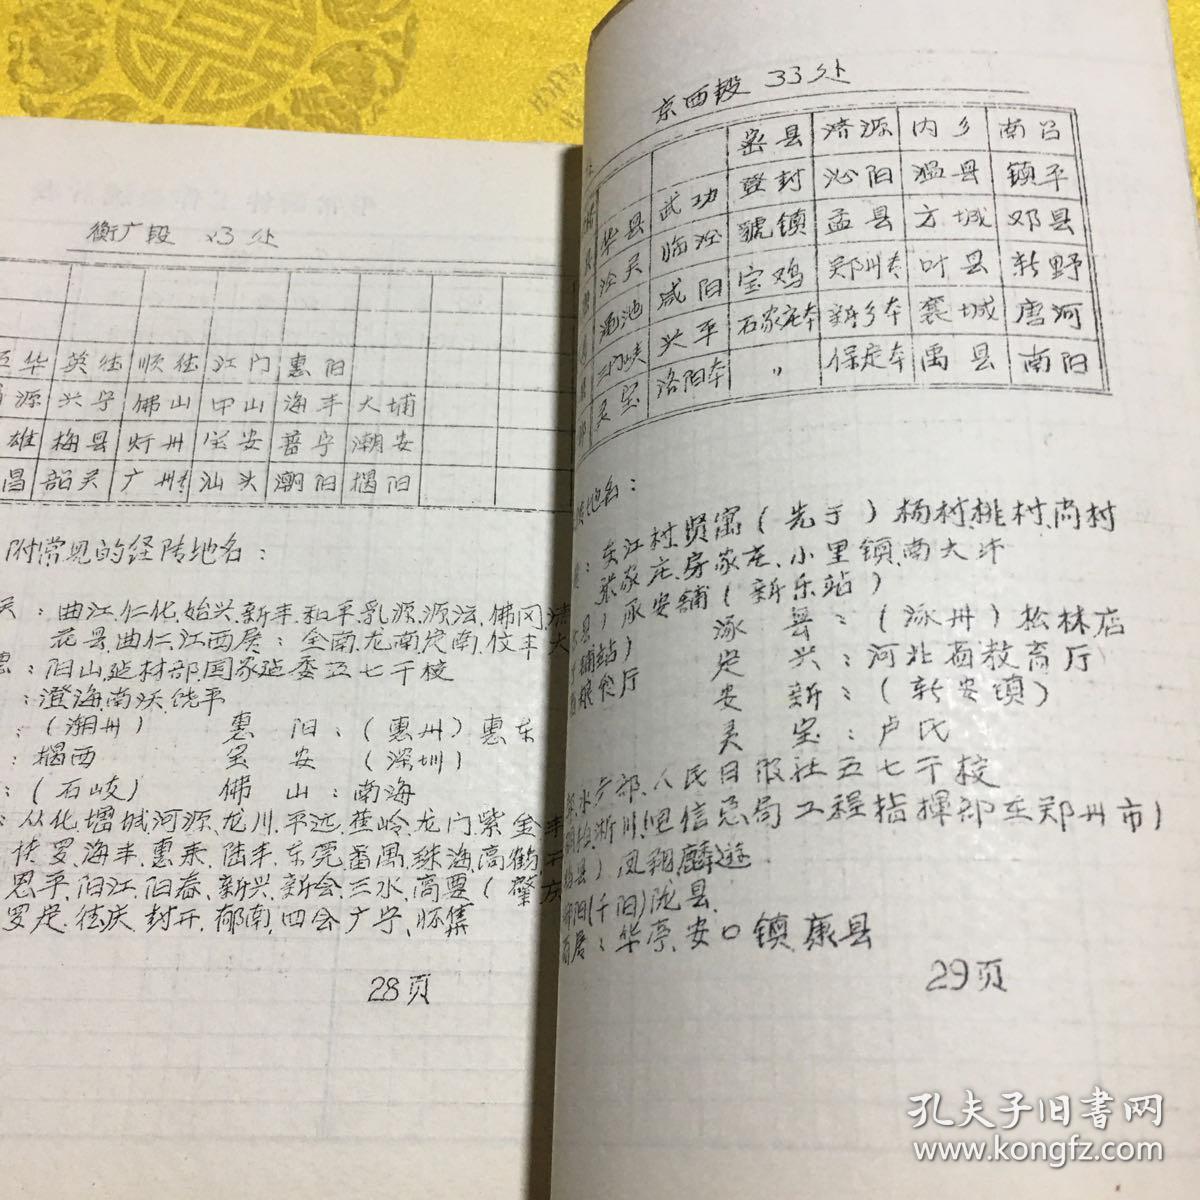 衡广段 23处
华 英德 顺德 江门 惠阳
源 兴宁 佛山 中山 海丰 大埔
雄 梅县 宝安 普宁 潮安
昌 韶关 广州 汕头 潮阳 揭阳
附常见的经转地名：
关：曲江、仁化、始兴、新丰、和平、乳源、佛冈、
花县、曲仁、江西局：全南、龙南、定南、
：阳山、建材部、国家建委五七干校
：澄海、南沃、饶平
：（潮州） 惠阳：（惠州）惠东
：揭西 宝安（深圳）
：（石岐） 佛山：南海
：从化、增城、河源、龙川、平远、蕉岭、龙门、紫金、丰
海丰、惠来、陆丰、东莞、番禺、珠海、高鹤、
恩平、阳江、阳春、新兴、新会、三水、高要（肇庆
罗定、德庆、封开、郁南、四会、广宁、怀集
28页
京西段 33处
密县 济源 内乡 南召
武功 登封 沁阳 温县 镇平
华县 临汾 虢镇 孟县 方城 邓县
咸阳 宝鸡 郑州本 叶县 新野
渑池 兴平 石家庄本 新乡本 襄城 唐河
三门峡 洛阳本 〃 保定本 禹县 南阳
灵宝
地名：
：东江村、贤寓（先于）杨村、桃村、尚村
张家庄、房家庄、小里镇、南大
）承安铺（新乐站）
铺站） 涿县：（涿州）松林店
粮食厅 定兴：河北省教育厅
安新：（新安镇）
灵宝：卢氏
水产部、人民日报社五七干校
淅川、电信总局工程指挥部在郑州市）
县）、凤翔、麟遊
阳（千阳）陇县、
局：华亭、安口镇、康县
29页
孔夫子旧书网
www.kongfz.com